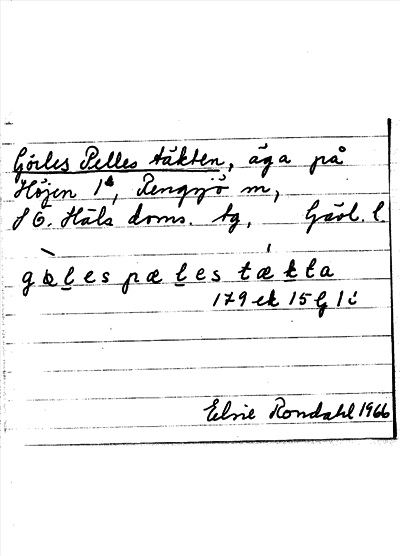 Görles Pelles täkten, äga på
Höjen 1⁴, Rengsjö sn,
S Ö. Häls doms. tg, Gävl. l.
gœ̀les pæles tǽkta
179 ek 15G 1i
Elsie Rondahl 1966